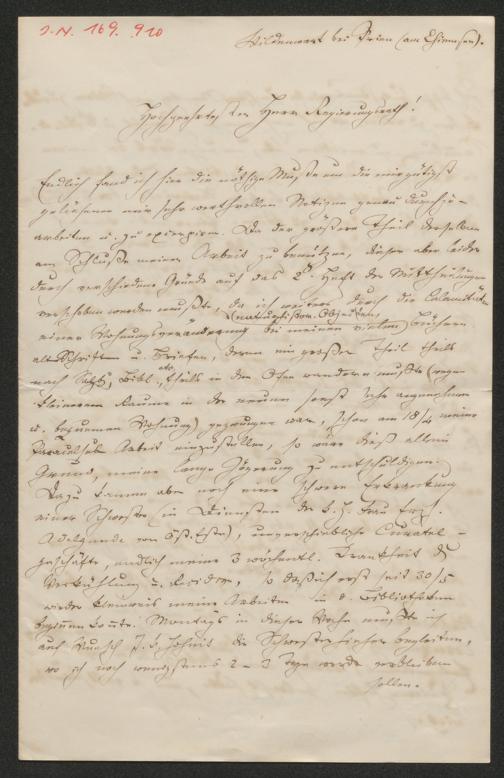 I.N. 169.910
Wildenwart bei Prien (am Chiemsee).
Hochgeehrtester Herr Regierungsrath!
Endlich fand ich hier die nöthige Muße um die mir gütigst
geliehenen mir sehr werthvollen Notizen genau durchzu-
arbeiten u. zu excerpiren. Da der größere Theil derselben
am Schluße meiner Arbeit zu benützen, dieser aber leider
durch verschiedene Gründe auf das 2te Heft der Mittheilungen
verschoben werden mußte, da ich weiters durch die Calamitäten
einer Wohnungsveränderung bei meinen vielen Büchern
(naturhistor. Objecten,
alten Schriften u. Briefen, deren ein großer Theil theils
nach Salzb. Bibl. etc., theils in den Ofen wandern mußte (wegen
kleinerem Raume in der neuen sonst sehr angenehmen
u. bequemen Wohnung) gezwungen war, schon am 18/4 meine
Paracelsus Arbeit einzustellen, so wäre dieß allein
Grund, meine lange Zögerung zu entschuldigen.
Dazu kamen aber noch eine schwere Erkrankung
einer Schwester (in Diensten der k. H. Frau Erzh.
Adelgunde von Öst. Este), unaufschiebliche Curatel-
geschäfte, endlich meine 3 wöchentl. Krankheit
Verkühlung u. so daß ich erst seit 30/5
wieder kleinweis meine Arbeiten in d. Bibliotheken
beginnen konnte. Montags in dieser Woche mußte ich
auf Wunsch I. k. Hoheit die Schwester hieher begleiten,
wo ich noch wenigstens 2-3 Tage werde verbleiben
sollen.